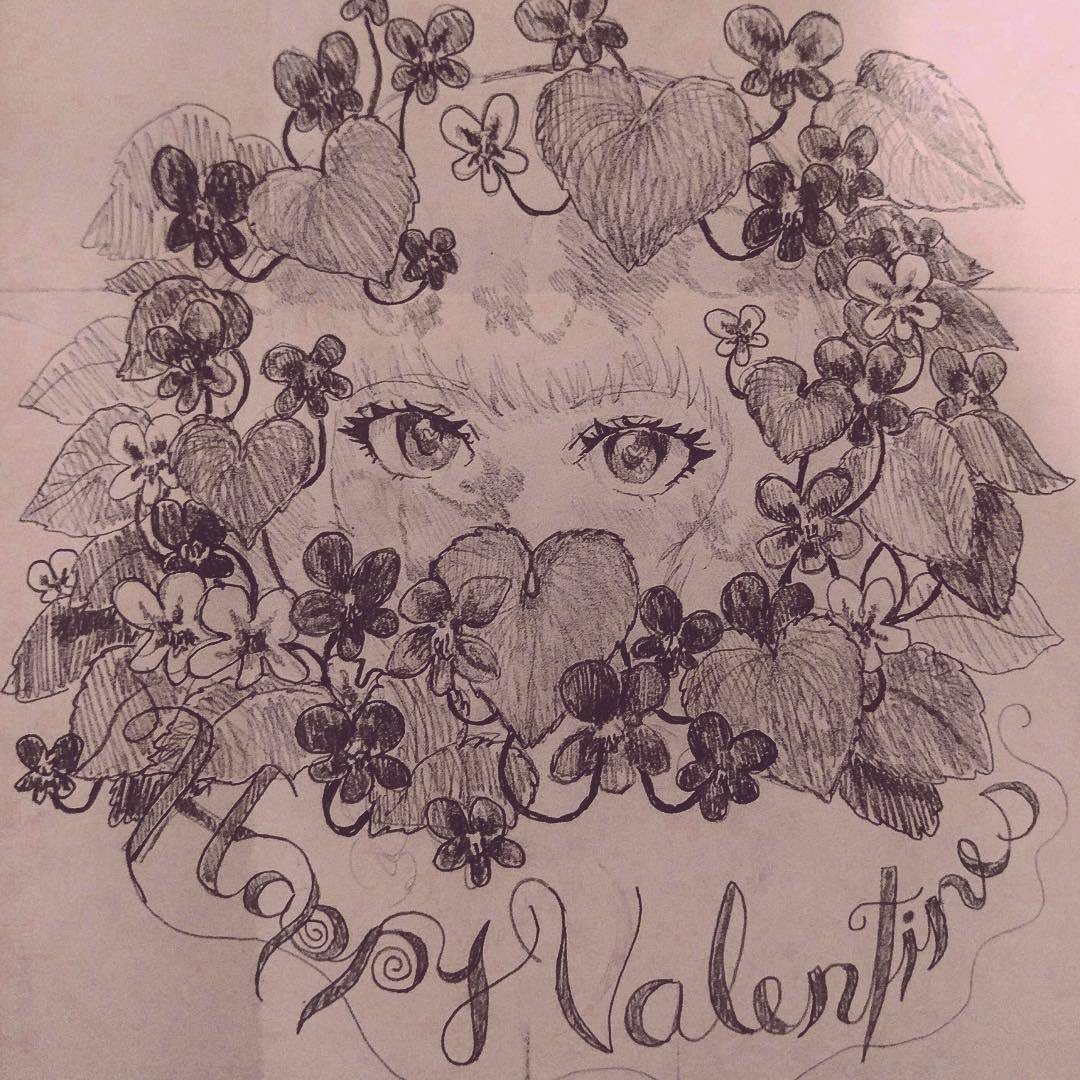 Happy Valentine